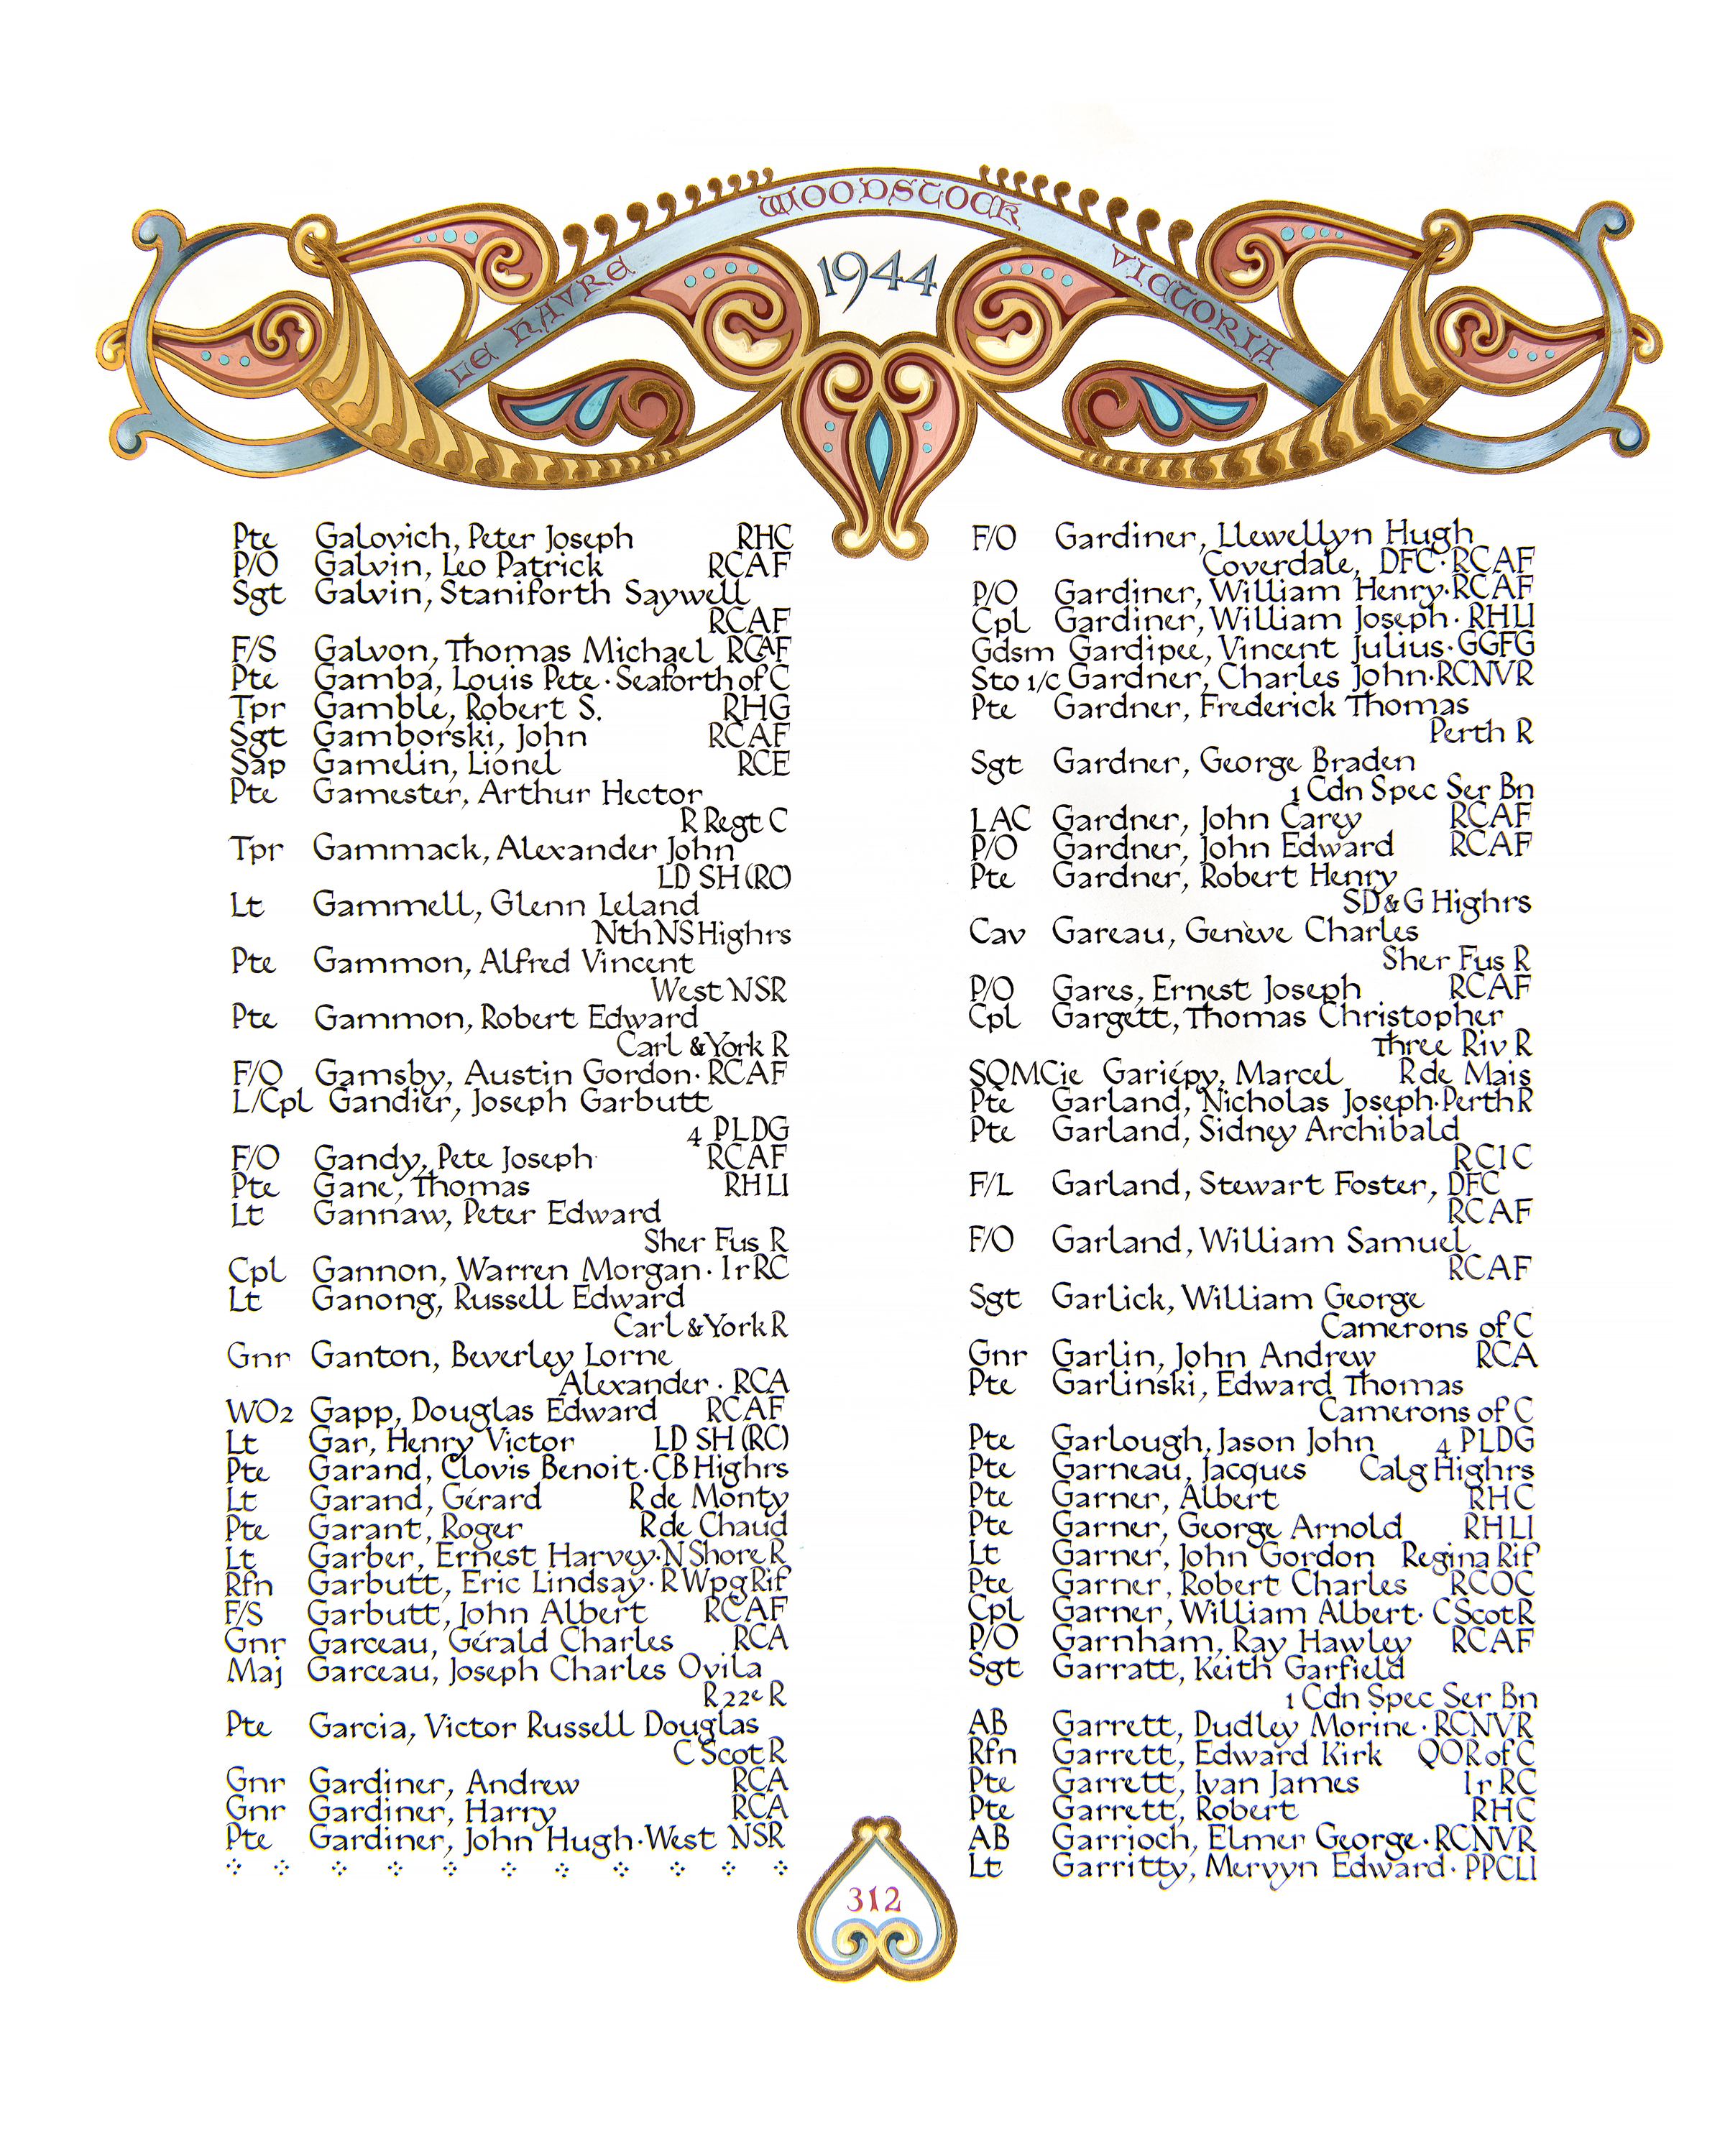 LE HAVRE
WOODSTOCK
VICTORIA
1944
Pte Galovich, Peter Joseph RHC
P/O Galvin, Leo Patrick RCAF
Sgt Galvin, Staniforth Saywell
RCAF
F/S Galvon, Thomas Michael RCAF
Pte Gamba, Louis Pete · Seaforth of C
Tpr Gamble, Robert S. RHG
Sgt Gamborski, John RCAF
Sap Gamelin, Lionel RCE
Pte Gamester, Arthur Hector
R Regt C
Tpr Gammack, Alexander John
LD SH (RC)
Lt Gammell, Glenn Leland
Nth NS Highrs
Pte Gammon, Alfred Vincent
West NSR
Pte Gammon, Robert Edward
Carl & York R
F/O Gamsby, Austin Gordon · RCAF
L/Cpl Gandier, Joseph Garbutt
4 PLDG
F/O Gandy, Pete Joseph RCAF
Pte Gane, Thomas RHLI
Lt Gannaw, Peter Edward
Sher Fus R
Cpl Gannon, Warren Morgan · Ir RC
Lt Ganong, Russell Edward
Carl & York R
Gnr Ganton, Beverley Lorne
Alexander · RCA
WO2 Gapp, Douglas Edward RCAF
Lt Gar, Henry Victor LD SH (RC)
Pte Garand, Clovis Benoit · CB Highrs
Lt Garand, Gérard R de Monty
Pte Garant, Roger R de Chaud
Lt Garber, Ernest Harvey · N Shore R
Rfn Garbutt, Eric Lindsay · R Wpg Rif
F/S Garbutt, John Albert RCAF
Gnr Garceau, Gérald Charles RCA
Maj Garceau, Joseph Charles Ovila
R 22e R
Pte Garcia, Victor Russell Douglas
C Scot R
Gnr Gardiner, Andrew RCA
Gnr Gardiner, Harry RCA
Pte Gardiner, John Hugh · West NSR
F/O Gardiner, Llewellyn Hugh
Coverdale, DFC · RCAF
P/O Gardiner, William Henry · RCAF
Cpl Gardiner, William Joseph · RHLI
Gdsm Gardipee, Vincent Julius · GGFG
Sto 1/c Gardner, Charles John · RCNVR
Pte Gardner, Frederick Thomas
Perth R
Sgt Gardner, George Braden
1 Cdn Spec Ser Bn
LAC Gardner, John Carey RCAF
P/O Gardner, John Edward RCAF
Pte Gardner, Robert Henry
SD & G Highrs
Cav Gareau, Genève Charles
Sher Fus R
P/O Gares, Ernest Joseph RCAF
Cpl Gargett, Thomas Christopher
Three Riv R
SQMCie Gariépy, Marcel R de Mais
Pte Garland, Nicholas Joseph · Perth R
Pte Garland, Sidney Archibald
RCIC
F/L Garland, Stewart Foster, DFC
RCAF
F/O Garland, William Samuel
RCAF
Sgt Garlick, William George
Camerons of C
Gnr Garlin, John Andrew RCA
Pte Garlinski, Edward Thomas
Camerons of C
Pte Garlough, Jason John 4 PLDG
Pte Garneau, Jacques Calg Highrs
Pte Garner, Albert RHC
Pte Garner, George Arnold RHLI
Lt Garner, John Gordon Regina Rif
Pte Garner, Robert Charles RCOC
Cpl Garner, William Albert · C Scot R
P/O Garnham, Ray Hawley RCAF
Sgt Garratt, Keith Garfield
1 Cdn Spec Ser Bn
AB Garrett, Dudley Morine · RCNVR
Rfn Garrett, Edward Kirk QOR of C
Pte Garrett, Ivan James Ir RC
Pte Garrett, Robert RHC
AB Garrioch, Elmer George · RCNVR
Lt Garritty, Mervyn Edward · PPCLI
312